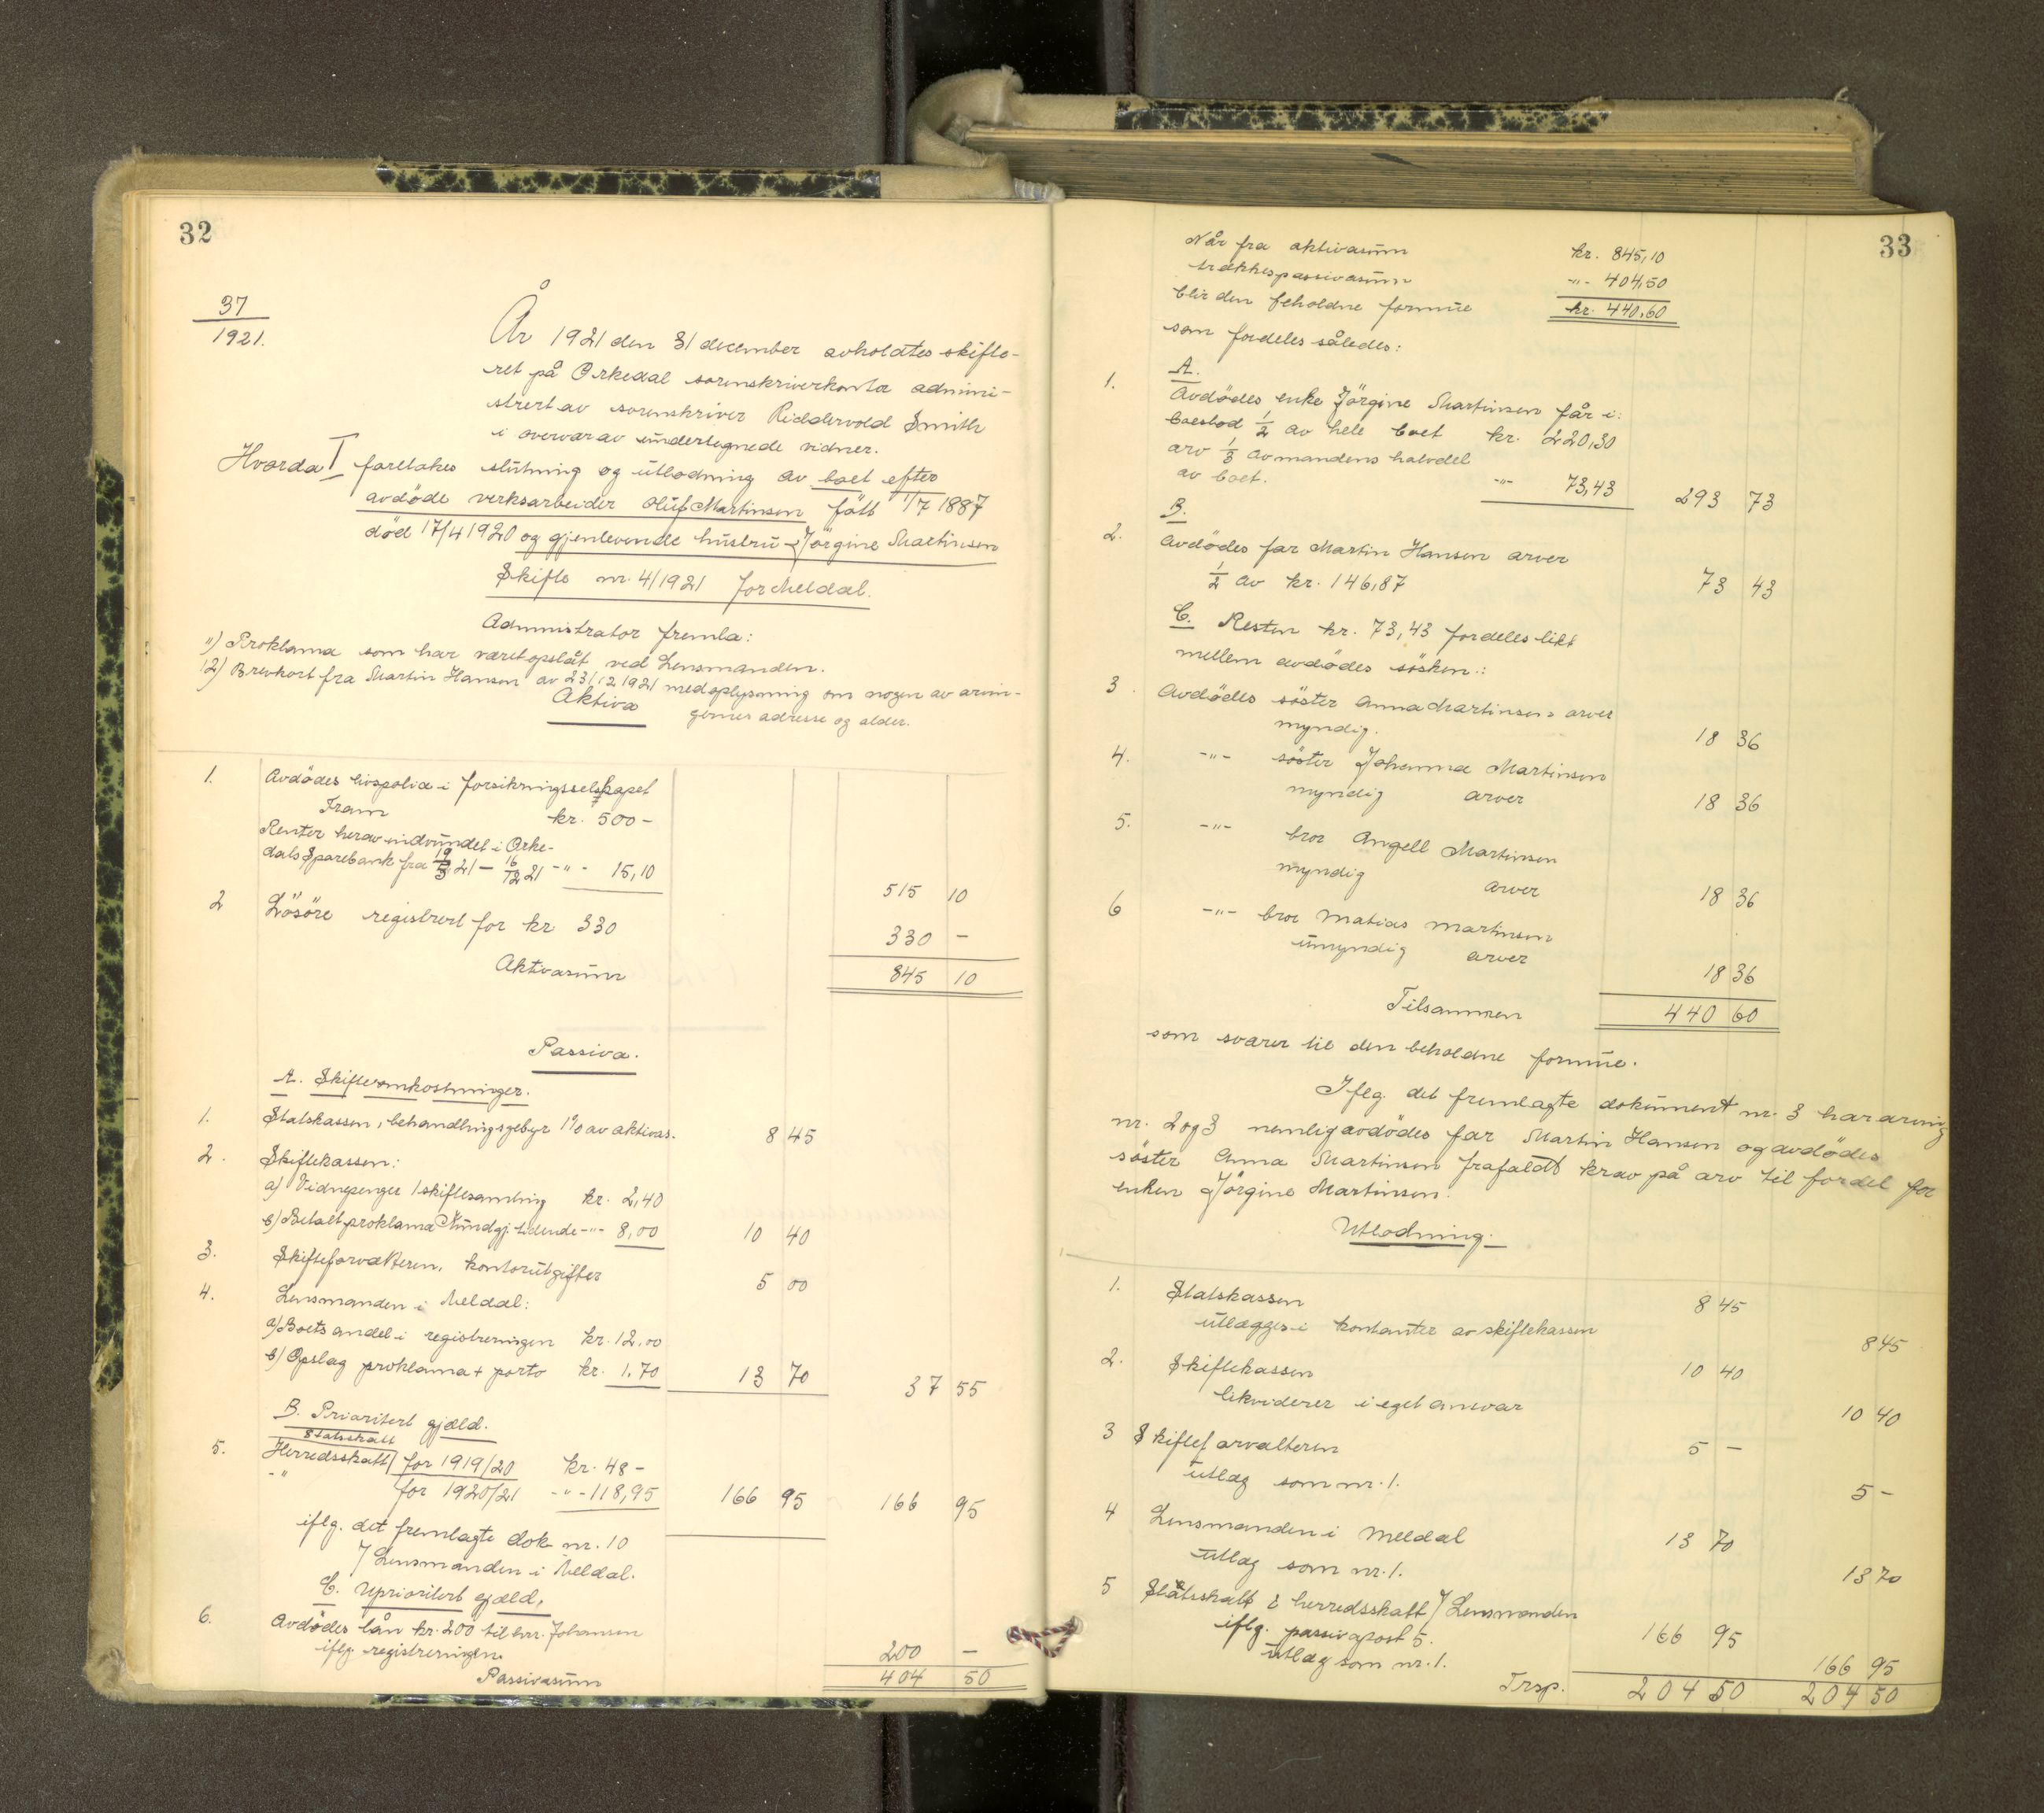 32
37
1921.
År 1921 den 31 december avholdtes skifte-
ret på Orkedal sorenskriverkontor admini-
strert av sorenskriver Riddervold Smith
i overvær av undertegnede vidner.
Hvorda I foretokes slutning og utlodning av boet efter
avdöde verksarbeider Oluf Martinsen född 1/7 1887
död 17/4 1920 og gjenlevende hustru Jörgine Martinsen
Skifte nr. 4/1921 for Meldal.
Administrator fremla:
11) Proklama som har været opslåt ved Lensmanden.
12) Brevkort fra Martin Hansen av 23/12 1921 med oplysning om nogen av arvin-
gernes adresse og alder.
Aktiva
1. Avdödes livspolice i forsikringsselskapet
Fram kr. 500 -
Renter herav indvundet i Orke-
dals Sparebank fra 19/3 21 - 16/12 21 -"- 15,10
515 10
2 Lösöre registrert for kr 330
330 -
Aktivasum 845 10
Passiva.
A. Skifteomkostninger.
1. Statskassen, behandlingsgebyr 1% av aktivas. 8 45
2. Skiftekassen:
a) Vidnepenger 1 skiftesamling kr. 2,40
b) Betalt proklama Kundgj. tidende -"- 8,00 10 40
3. Skifteforvalteren, kontorutgifter 5 00
4. Lensmanden i Meldal:
a) Boets andel i registreringen kr. 12.00
b) Opslag proklama + porto kr. 1.70 13 70 37 55
B. Prioritert gjæld.
Statsskatt
5. Herredsskatt for 1919/20 kr. 48 -
-"- for 1920/21 -"- 118,95 166 95 166 95
iflg. det fremlagte dok nr. 10
/ Lensmanden i Meldal.
C. Uprioritert gjæld.
6. Avdödes lån kr. 200 til hr. Johansen
iflg registreringen. 200 -
Passivasum 404 50
33
Når fra aktivasum kr. 845,10
trækkes passivasum -"- 404,50
blir den beholdne formue kr. 440,60
som fordeles således:
A.
1. Avdödes enke Jörgine Martinsen får i:
boeslod 1/2 av hele boet kr. 220,30
arv 1/3 av mandens halvdel
av boet. -"- 73,43 293 73
B.
2. Avdödes far Martin Hansen arver
1/2 av kr. 146,87 73 43
C. Resten kr. 73,43 fordeles likt
mellem avdödes sösken:
3. Avdödes söster Anna Martinsen arver
myndig. 18 36
4. -"- söster Johanna Martinsen
myndig arver 18 36
5. -"- bror Angell Martinsen
myndig arver 18 36
6 -"- bror Matias Martinsen
umyndig arver 18 36
Tilsammen 440 60
som svarer til den beholdne formue.
Iflg. det fremlagte dokument nr. 3 har arving
nr. 2 og 3 nemlig avdödes far Martin Hansen og avdödes
söster Anna Martinsen frafaldt krav på arv til fordel for
enken Jörgine Martinsen.
Utlodning.
1. Statskassen 8 45
utlægges i kontanter av skiftekassen 8 45
2. Skiftekassen 10 40
likviderer i eget ansvar 10 40
3 Skifteforvalteren 5 -
utlæg som nr. 1. 5 -
4 Lensmanden i Meldal 13 70
utlæg som nr. 1. 13 70
5 Statsskatt & herredsskatt / Lensmanden
iflg. passivapost 5. 166 95
utlæg som nr. 1. 166 95
Trsp. 204 50 204 50